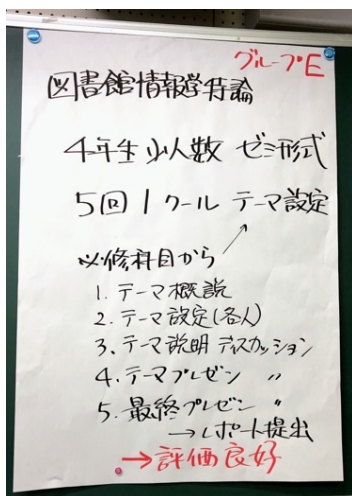 グループE
図書館情報学特論
4年生 少人数 ゼミ形式
5回1クール テーマ設定
必修科目から
1. テーマ概説
2. テーマ設定(各人)
3. テーマ説明 ディスカッション
4. テーマプレゼン 〃
5. 最終プレゼン 〃
→レポート提出
→評価良好